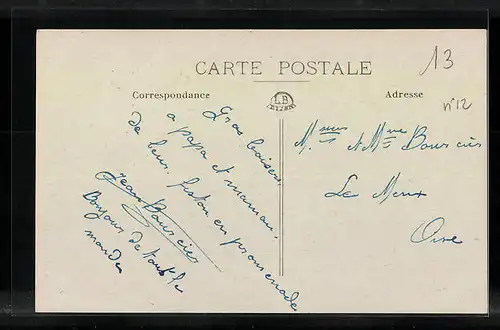 13
CARTE POSTALE
Correspondance
LB
Adresse
n° 12
Gros baisers
a papa et maman.
de leur fiston en promenade
Jean Bourcier
Bonjour de tout le
monde
M. et Mme Bourcier
Le Meux
Oise